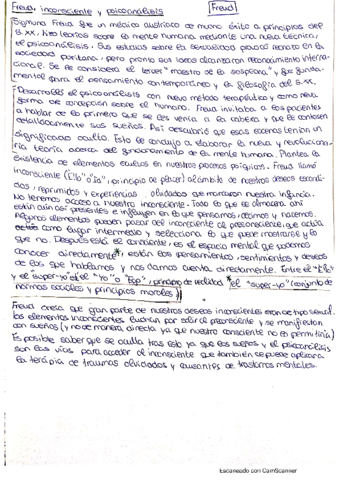 Freud, inconsciente y psicoanálisis Freud
Sigmund Freud fue un médico austriaco de mucho éxito a principios del
s.XX, creó teorías sobre la mente humana mediante una nueva técnica,
el psicoanálisis. Sus estudios sobre la sexualidad provocó rechazo en la
sociedad puritana, pero pronto sus ideas alcanzaron reconocimiento interna-
cional. Se le considera el tercer "maestro de la sospecha" y fue funda-
mental para el pensamiento contemporáneo y la filosofía del s.XX.
Desarrolló el psicoanálisis con nuevo método terapéutico y como nueva
forma de concepción sobre el humano. Freud invitaba a los pacientes
a hablar de lo primero que se les venía a la cabeza y que le contasen
detalladamente sus sueños. Así descubrió que esas escenas tenían un
significado oculto. Esto le condujo a elaborar la nueva y revoluciona-
ria teoría acerca del funcionamiento de la mente humana. Plantea la
existencia de elementos ocultos en nuestros procesos psíquicos. Freud llamó
inconsciente ("Ello" o "Id", principio de placer) al ámbito de nuestros deseos escondi-
dos, reprimidos y experiencias olvidadas que marcaron nuestra infancia.
No tenemos acceso a nuestro inconsciente. Todo lo que se almacena ahí
están aún así presentes e influyen en lo que pensamos, decimos y hacemos.
Algunos elementos pueden pasar del inconsciente al preconsciente, que actúa
como lugar intermedio y selecciona lo que puede mostrarse y lo
que no. Después está el consciente, es el espacio mental que podemos
conocer directamente, están los pensamientos, sentimientos y deseos
de los que hablamos y nos damos cuenta directamente. Entre el "Ello"
y el super-yo está el "Yo" o "Ego", principio de realidad *el "super-yo" (conjunto de
normas sociales y principios morales)
Freud creía que gran parte de nuestros deseos inconscientes eran de tipo sexual.
los elementos inconscientes luchan por salir al preconsciente y se manifiestan
con sueños (y no de manera directa ya que nuestro consciente no lo permitiría)
Es posible saber que se oculta tras esto ya que los sueños y el psicoanálisis
son las vías para acceder al inconsciente que también se puede aplicar a
la terapia de traumas olvidados y causantes de trastornos mentales.
Escaneado con CamScanner